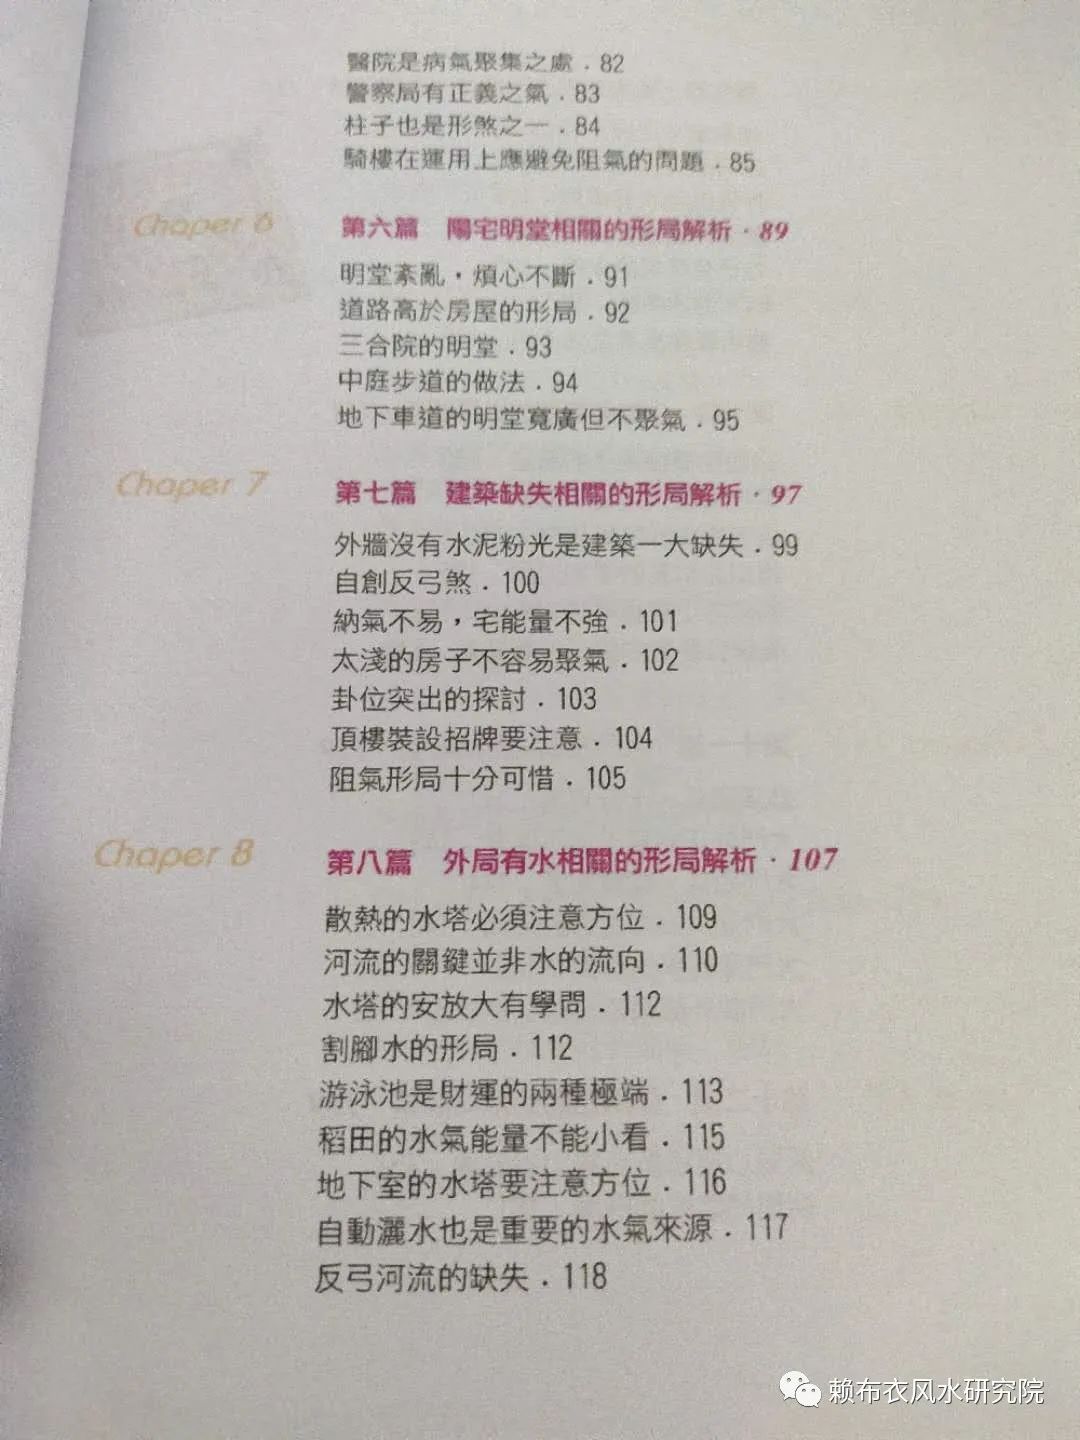 醫院是病氣聚集之處．82
警察局有正義之氣．83
柱子也是形煞之一．84
騎樓在運用上應避免阻氣的問題．85
Chaper 6 第六篇 陽宅明堂相關的形局解析．89
明堂紊亂，煩心不斷．91
道路高於房屋的形局．92
三合院的明堂．93
中庭步道的做法．94
地下車道的明堂寬廣但不聚氣．95
Chaper 7 第七篇 建築缺失相關的形局解析．97
外牆沒有水泥粉光是建築一大缺失．99
自創反弓煞．100
納氣不易，宅能量不強．101
太淺的房子不容易聚氣．102
卦位突出的探討．103
頂樓裝設招牌要注意．104
阻氣形局十分可惜．105
Chaper 8 第八篇 外局有水相關的形局解析．107
散熱的水塔必須注意方位．109
河流的關鍵並非水的流向．110
水塔的安放大有學問．112
割腳水的形局．112
游泳池是財運的兩種極端．113
稻田的水氣能量不能小看．115
地下室的水塔要注意方位．116
自動灑水也是重要的水氣來源．117
反弓河流的缺失．118
赖布衣风水研究院